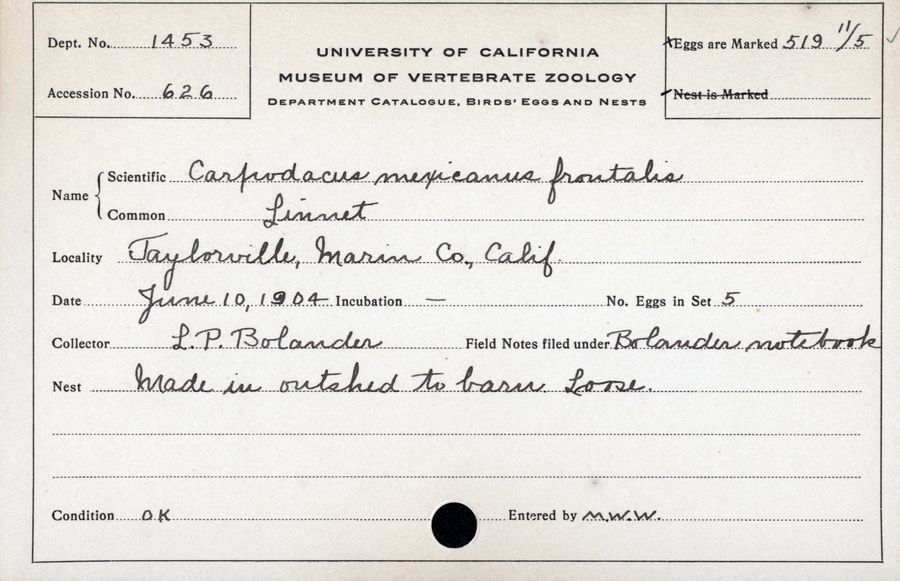 Dept. No. 1453
Accession No. 626
UNIVERSITY OF CALIFORNIA
MUSEUM OF VERTEBRATE ZOOLOGY
DEPARTMENT CATALOGUE, BIRDS' EGGS AND NESTS
Eggs are Marked 519 11/5
Nest is Marked
Name
Scientific Carpodacus mexicanus frontalis
Common Linnet
Locality Taylorville, Marin Co., Calif.
Date June 10, 1904 Incubation — No. Eggs in Set 5
Collector L.P. Bolander Field Notes filed under Bolander notebook
Nest Made in outshed to barn. Loose.
Condition OK Entered by M.W.W.